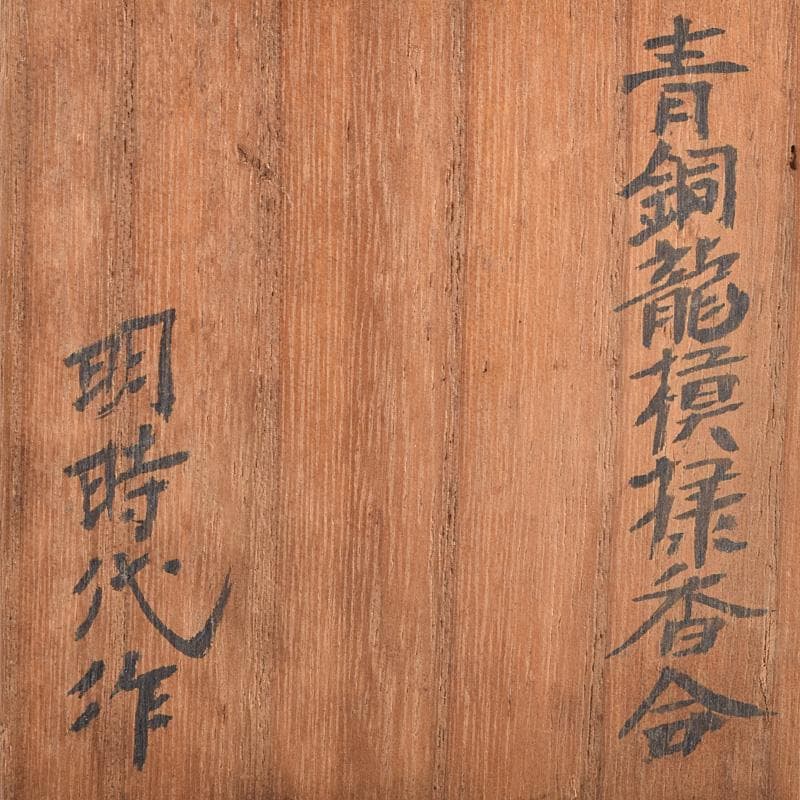 青銅龍模様香合
明時代作